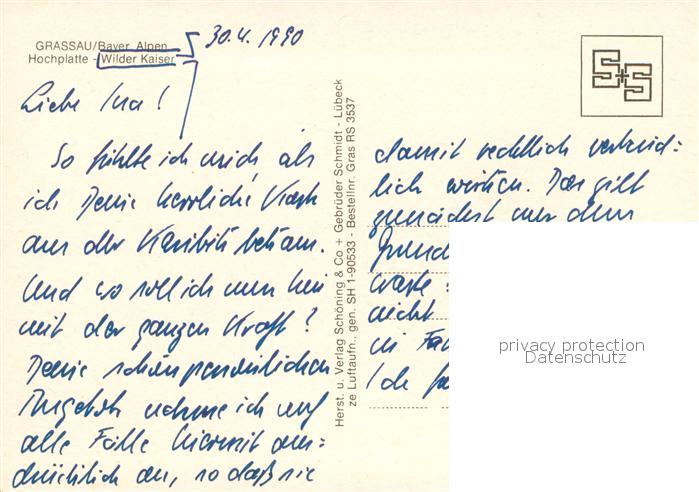 GRASSAU/Bayer. Alpen
Hochplatte - Wilder Kaiser
30.4.1990
S+S
Liebe Ina!
So fühlte ich mich als
ich Deine herrliche Karte
aus der Karibik bekam.
Und wo soll ich nun hin
mit der ganzen Kraft?
Deine schön persönlichen
Angebote nehme ich auf
alle Fälle hiermit aus=
drücklich an, so daß sie
Herst. u. Verlag Schöning & Co + Gebrüder Schmidt - Lübeck
ze Luftaufn., gen. SH 1-90533 - Bestellnr. Gras RS 3537
damit rechtlich verbind=
lich wirken. Das gilt
zunächst nur dem
nicht
in
Ich
privacy protection
Datenschutz